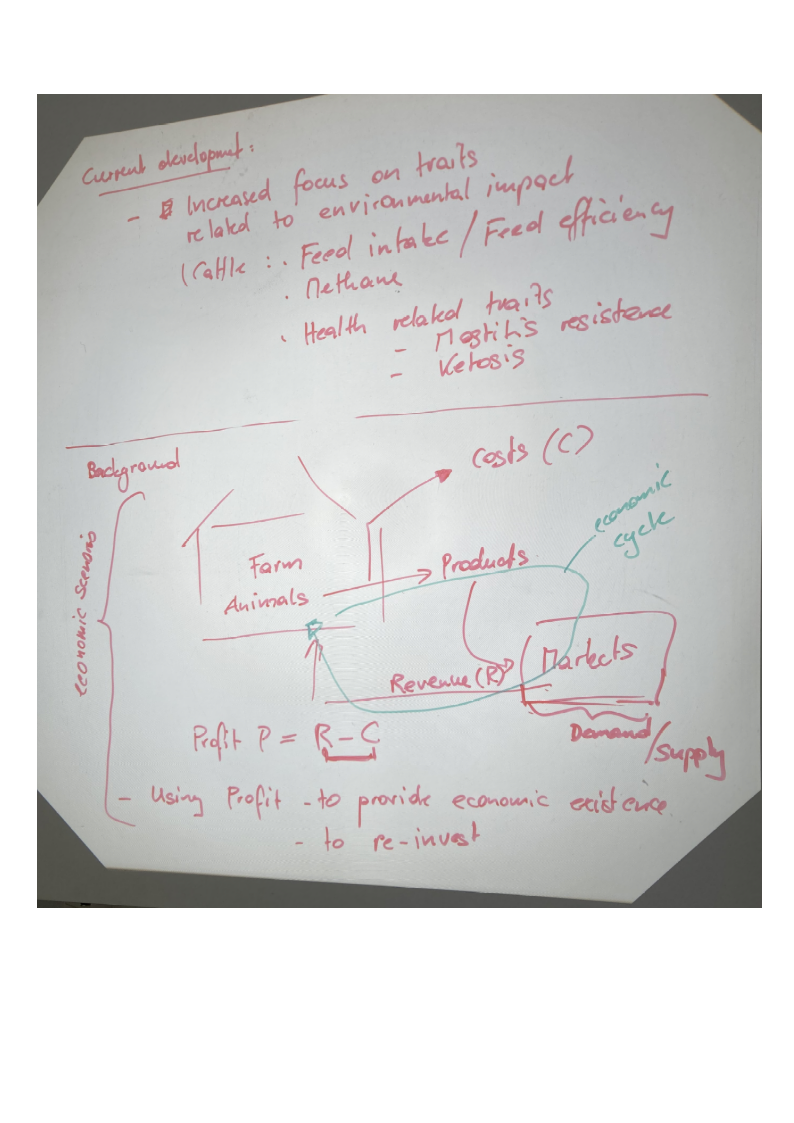 Current development:
- Increased focus on traits
related to environmental impact
(Cattle : . Feed intake / Feed efficiency
. Methane
. Health related traits
- Mastitis resistance
- Ketosis
Background
Costs (C)
economic
cycle
economic Scenario
Farm
Animals
Products
Markets
Revenue (R)
Demand/
supply
Profit P = R - C
- Using Profit - to provide economic existence
- to re-invest